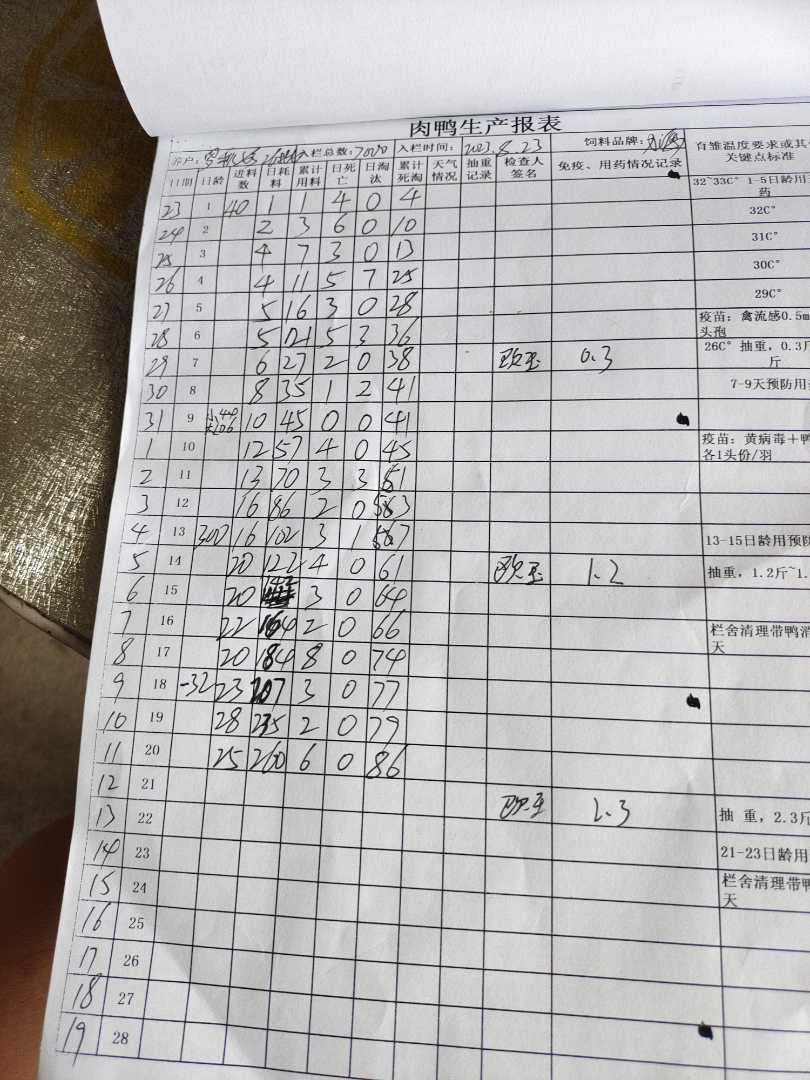 肉鸭生产报表
养户: 入栏总数:7000 入栏时间:2023.8.23 饲料品牌: 育雏温度要求或其他关键点标准
日期 日龄 进料数 日耗料 累计用料 日死亡 日淘汰 累计死淘 天气情况 抽重记录 检查人签名 免疫、用药情况记录
23 1 40 1 1 4 0 4 32~33C° 1-5日龄用 药
24 2 2 3 6 0 10 32C°
25 3 4 7 3 0 13 31C°
26 4 4 11 5 7 25 30C°
27 5 5 16 3 0 28 29C°
28 6 5 21 5 3 36 疫苗: 禽流感0.5m 头孢
29 7 6 27 2 0 38 0.3 26C° 抽重, 0.3斤 斤
30 8 8 35 1 2 41 7-9天预防用
31 9 10 45 0 0 41
1 10 12 57 4 0 45 疫苗: 黄病毒+鸭 各1头份/羽
2 11 13 70 3 3 51
3 12 16 86 2 0 53
4 13 300 16 102 3 1 57 13-15日龄用预防
5 14 20 122 4 0 61 1.2 抽重, 1.2斤~1.
6 15 20 142 3 0 64
7 16 22 164 2 0 66 栏舍清理带鸭消 天
8 17 20 184 8 0 74
9 18 -32 23 207 3 0 77
10 19 28 235 2 0 79
11 20 25 260 6 0 86
12 21
13 22 2.3 抽 重, 2.3斤
14 23 21-23日龄用
15 24 栏舍清理带鸭 天
16 25
17 26
18 27
19 28